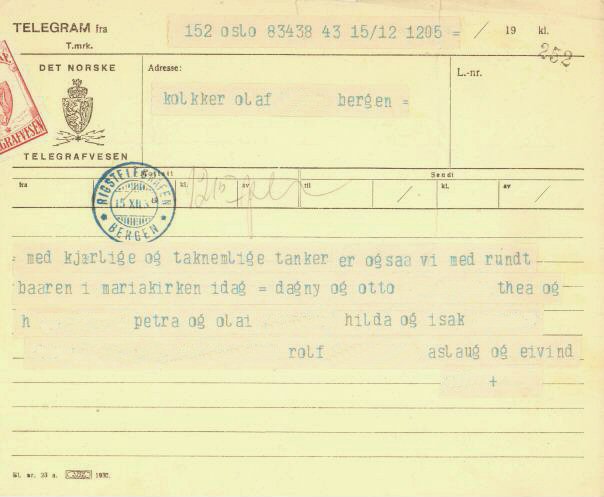 TELEGRAM fra
T.mrk.
152 oslo 83438 43 15/12 1205 = / 19 kl.
252
DET NORSKE
TELEGRAFVESEN
Adresse:
L.-nr.
kolkker olaf bergen =
Sendt
fra kl. av til / kl. av /
1215
RIGSTELEGRAFEN
15.XII.3
BERGEN
= med kjærlige og taknemlige tanker er ogsaa vi med rundt
baaren i mariakirken idag = dagny og otto thea og
h petra og olai hilda og isak
rolf aslaug og eivind
+
Bl. nr. 23 a. 1930.